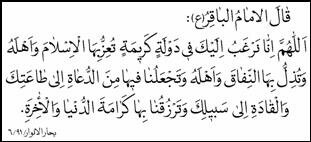 قَالَ الامَامُ البَاقِرُ(ع):
اَللّٰهُمَّ اِنَّا نَرْغَبُ اِلَيْكَ فِى دَوْلَةٍ كَرِيمَةٍ تُعِزُّبِهَا الْاِسْلَامَ وَاَهْلَهُ
وَتُذِلُّ بِهَا النِّفَاقَ وَاَهْلَهُ وَتَجْعَلُنَا فِيهَا مِنَ الدُّعَاةِ اِلىٰ طَاعَتِكَ
وَالْقَادَةِ اِلىٰ سَبِيلِكَ وَتَرْزُقُنَا بِهَا كَرَامَةَ الدُّنْيَا وَالْآخِرَةِ.
بحارالانوار ٦/٩١